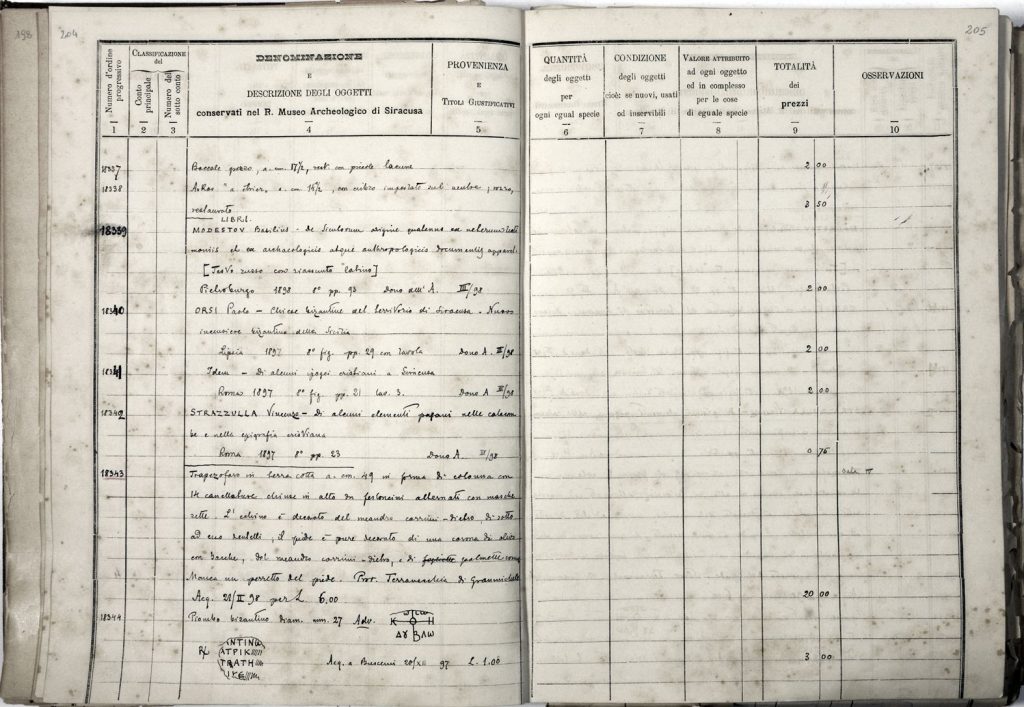 198
204
205
Numero d'ordine progressivo
CLASSIFICAZIONE
del
Conto principale
Numero del sotto conto
DENOMINAZIONE
E
DESCRIZIONE DEGLI OGGETTI
conservati nel R. Museo Archeologico di Siracusa
PROVENIENZA
E
TITOLI GIUSTIFICATIVI
QUANTITÀ
degli oggetti
per
ogni egual specie
CONDIZIONE
degli oggetti
cioè: se nuovi, usati
od inservibili
VALORE ATTRIBUITO
ad ogni oggetto
ed in complesso
per le cose
di eguale specie
TOTALITÀ
dei
prezzi
OSSERVAZIONI
1 2 3 4 5 6 7 8 9 10
18337 Boccale grezzo, a. cm. 17½, rest. con piccole lacune 2 00
18338 Askos a cm. 16½, rozzo,
restaurato 3 50
LIBRI.
18339 MODESTOV Basilius - de Siculorum origine quatenus ex veterum testi
moniis et ex archaeologicis atque anthropologicis documentis apparet
[Testo russo con riassunto latino]
Pietroburgo 1898 8° pp. 93 Dono dell'A. III/98 2 00
18340 ORSI Paolo - Chiese bizantine del territorio di Siracusa. Nuove
bizantino della Sicilia
Lipsia 1897 8° fig. pp. 29 con tavola Dono A. III/98 2 00
18341 Idem - Di alcuni ipogei cristiani a Siracusa
Roma 1897 8° fig. pp. 21 tav. 3. Dono A III/98 2 00
18342 STRAZZULLA Vincenzo - Di alcuni elementi pagani nelle catacom
be e nella epigrafia cristiana
Roma 1897 8° pp. 23 Dono A. III/98 0 75
18343 Trapezoforo in terra cotta a. cm. 49 in forma di colonna con
14 cancellature chiuse in alto da festoncini alternati con masche
rette. L' è decorato del meandro corrimi-dietro, di sotto
ad esso dentelli, il piede è pure decorato di una corona di olivo
con bacche, del meandro corrimi-dietro, e di palmette
Manca un pezzetto del piede. Prov. Terravecchia di Grammichele
Acq. 21/II 98 per L 6,00 20 00
Sala
18344 Piombo bizantino diam. mm. 27 Adv.
K H
ΔΟΥΛΩ
R/ ANTINO
ATPIK
TPATH
IKE
Acq. a Buscemi 20/XII 97 L. 1.00 3 00